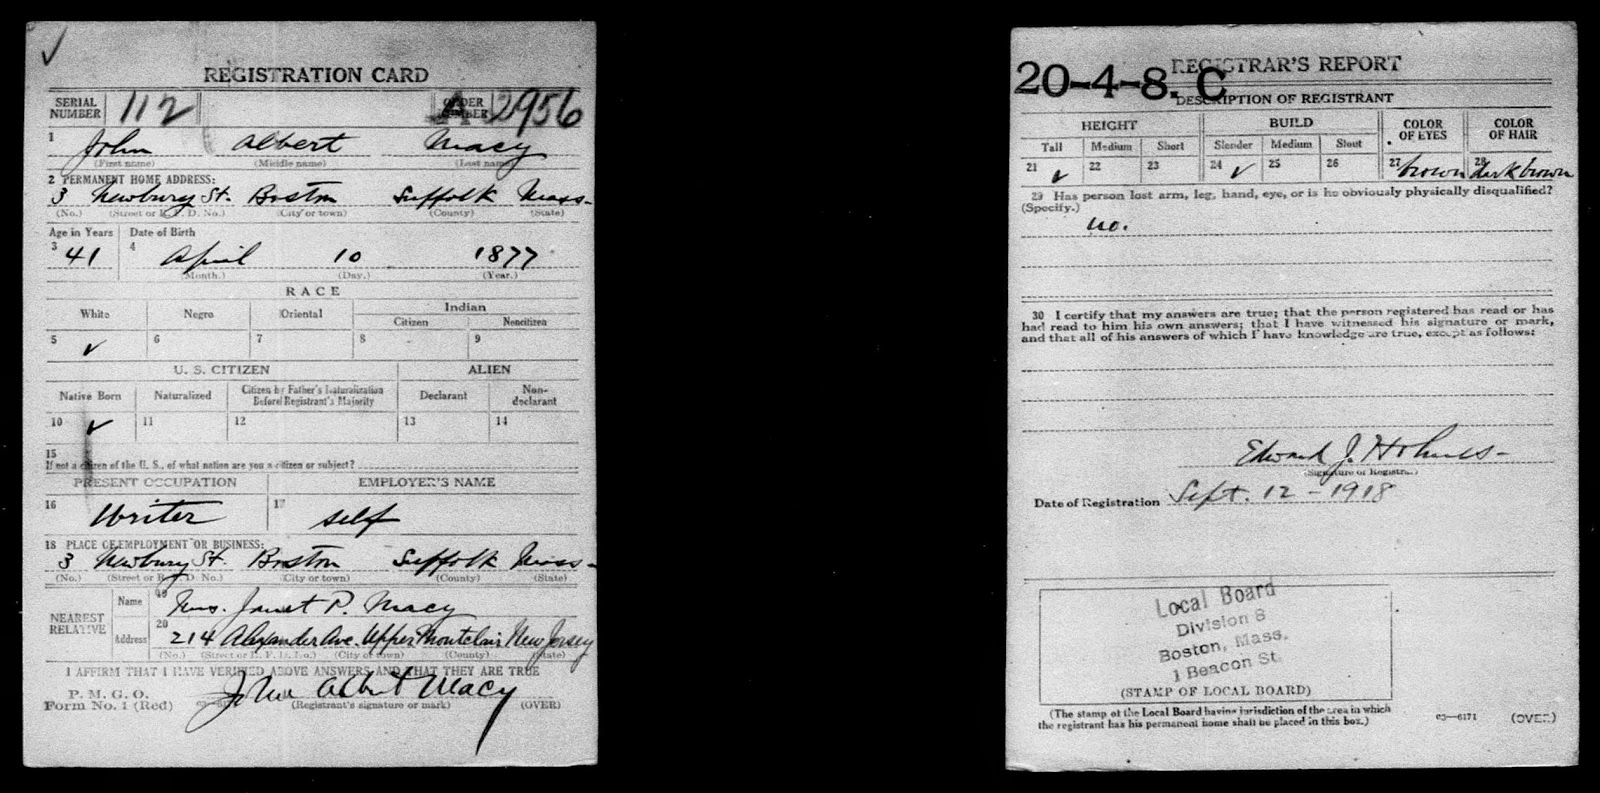 REGISTRATION CARD
SERIAL NUMBER 112 ORDER NUMBER A 2956
1 John Albert Macy
(First name) (Middle name) (Last name)
2 PERMANENT HOME ADDRESS:
3 Newbury St. Boston Suffolk Mass-
(No.) (Street or R. F. D. No.) (City or town) (County) (State)
Age in Years Date of Birth
3 41 4 April 10 1877
(Month.) (Day.) (Year.)
RACE
White Negro Oriental Indian
Citizen Noncitizen
5 ✓ 6 7 8 9
U. S. CITIZEN ALIEN
Native Born Naturalized Citizen by Father's Naturalization Before Registrant's Majority Declarant Non-declarant
10 ✓ 11 12 13 14
15
If not a citizen of the U. S., of what nation are you a citizen or subject?
PRESENT OCCUPATION EMPLOYER'S NAME
16 Writer 17 self
18 PLACE OF EMPLOYMENT OR BUSINESS:
3 Newbury St. Boston Suffolk Mass-
(No.) (Street or R. F. D. No.) (City or town) (County) (State)
NEAREST RELATIVE Name 19 Mrs. Janet P. Macy
Address 20 214 Alexander Ave. Upper Montclair New Jersey
(No.) (Street or R. F. D. No.) (City or town) (County) (State)
I AFFIRM THAT I HAVE VERIFIED ABOVE ANSWERS AND THAT THEY ARE TRUE
P. M. G. O.
Form No. 1 (Red) John Albert Macy
(Registrant's signature or mark) (OVER)
REGISTRAR'S REPORT
20-4-8. C
DESCRIPTION OF REGISTRANT
HEIGHT BUILD COLOR OF EYES COLOR OF HAIR
Tall Medium Short Slender Medium Stout
21 ✓ 22 23 24 ✓ 25 26 27 brown 28 dark brown
29 Has person lost arm, leg, hand, eye, or is he obviously physically disqualified?
(Specify.)
no.
30 I certify that my answers are true; that the person registered has read or has
had read to him his own answers; that I have witnessed his signature or mark,
and that all of his answers of which I have knowledge are true, except as follows:
Edward J. Holmes-
(Signature of Registrar)
Date of Registration Sept. 12 - 1918
Local Board
Division 8
Boston, Mass.
1 Beacon St.
(STAMP OF LOCAL BOARD)
(The stamp of the Local Board having jurisdiction of the area in which
the registrant has his permanent home shall be placed in this box.)
03—6171 (OVER)